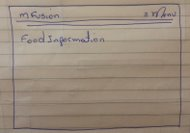 M Fusion Menu
Food Information